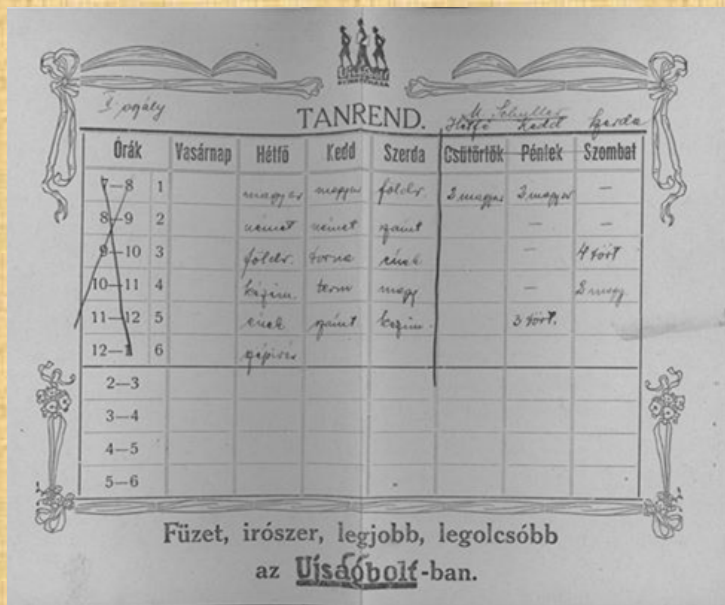 Ujságbolt
I. ogály
TANREND.
M. Schuller
Hétfő Kedd Szerda
Órák Vasárnap Hétfő Kedd Szerda Csütörtök Péntek Szombat
7—8 1 magyar magyar földr. 3 magyar 3 magyar —
8—9 2 német német számt — —
9—10 3 földr. torna ének — 4 tört
10—11 4 kézim. term magy — 3 magy
11—12 5 ének számt kézim. 3 tört.
12—1 6 gépírás
2—3
3—4
4—5
5—6
Füzet, irószer, legjobb, legolcsóbb
az Ujságbolt-ban.